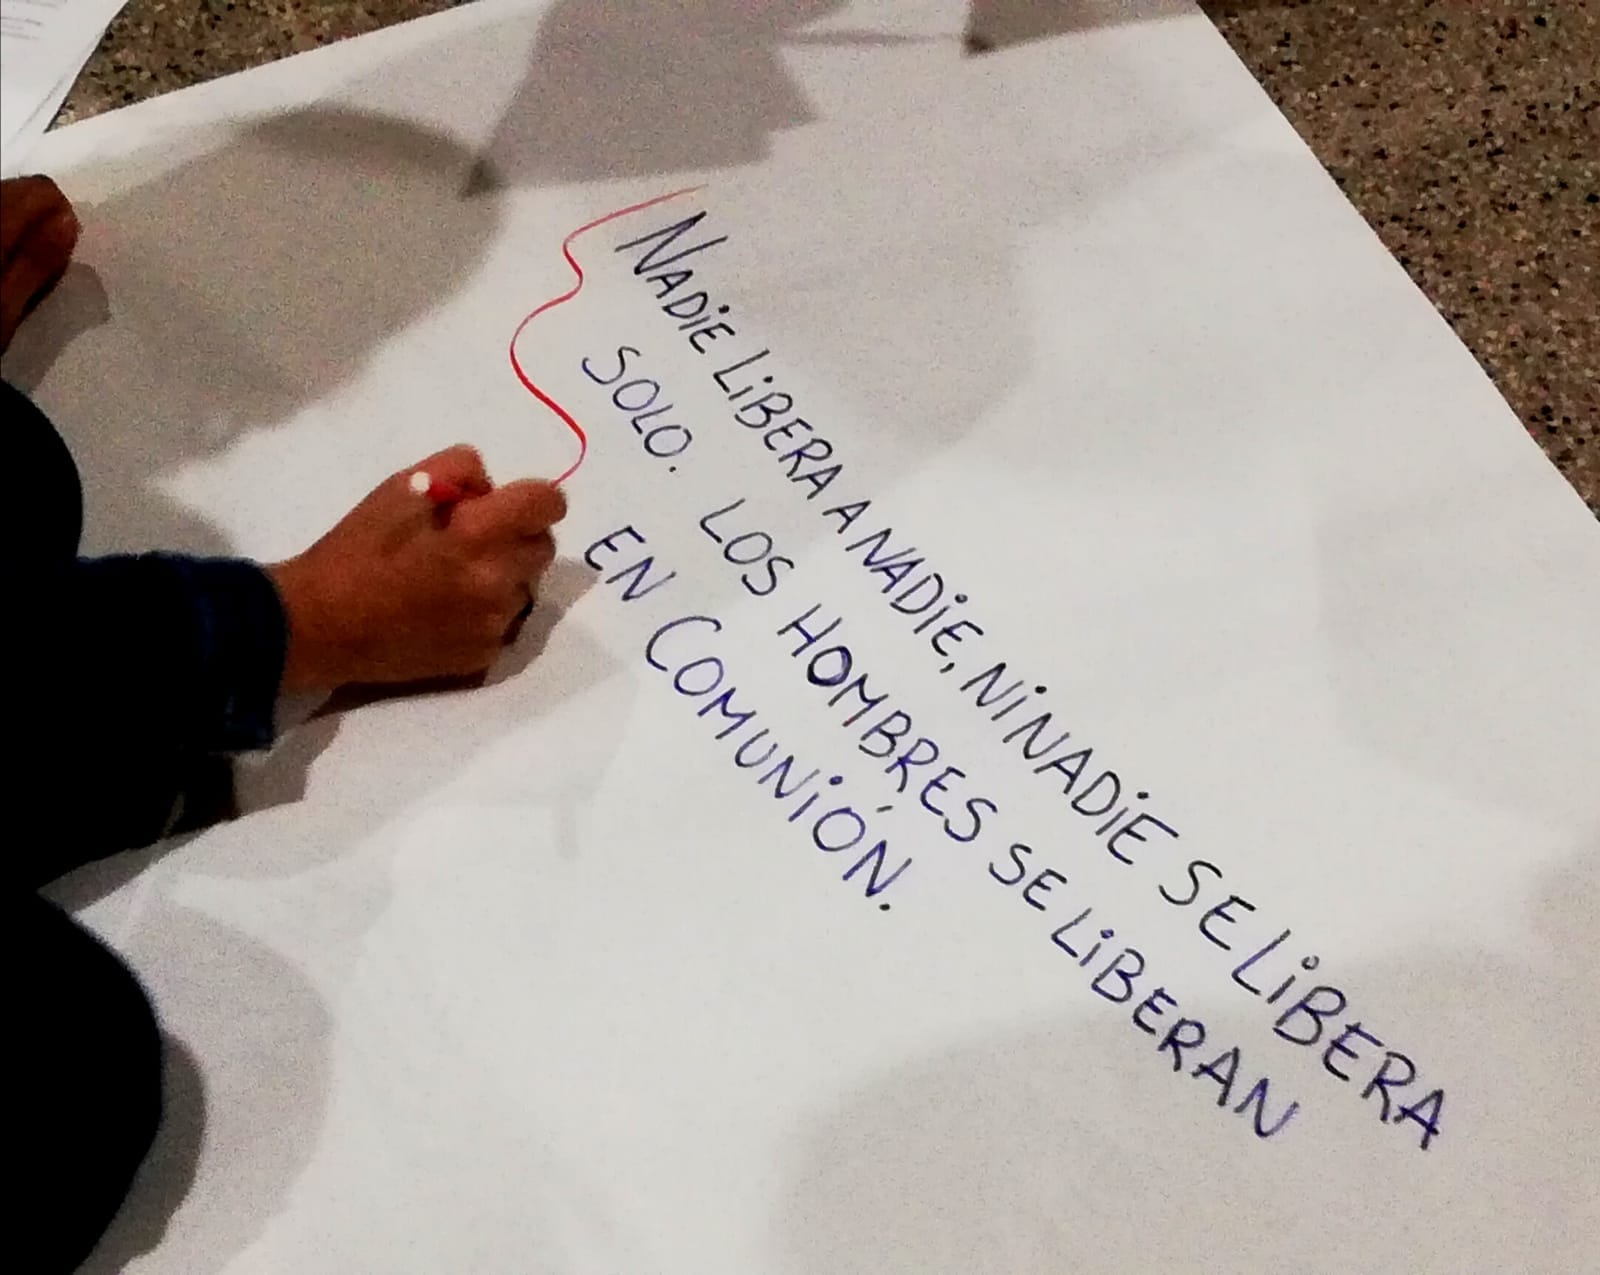 NADiE LiBERA A NADiE, Ni NADiE SE LiBERA
SOLO. LOS HOMBRES SE LiBERAN
EN COMUNiÓN.